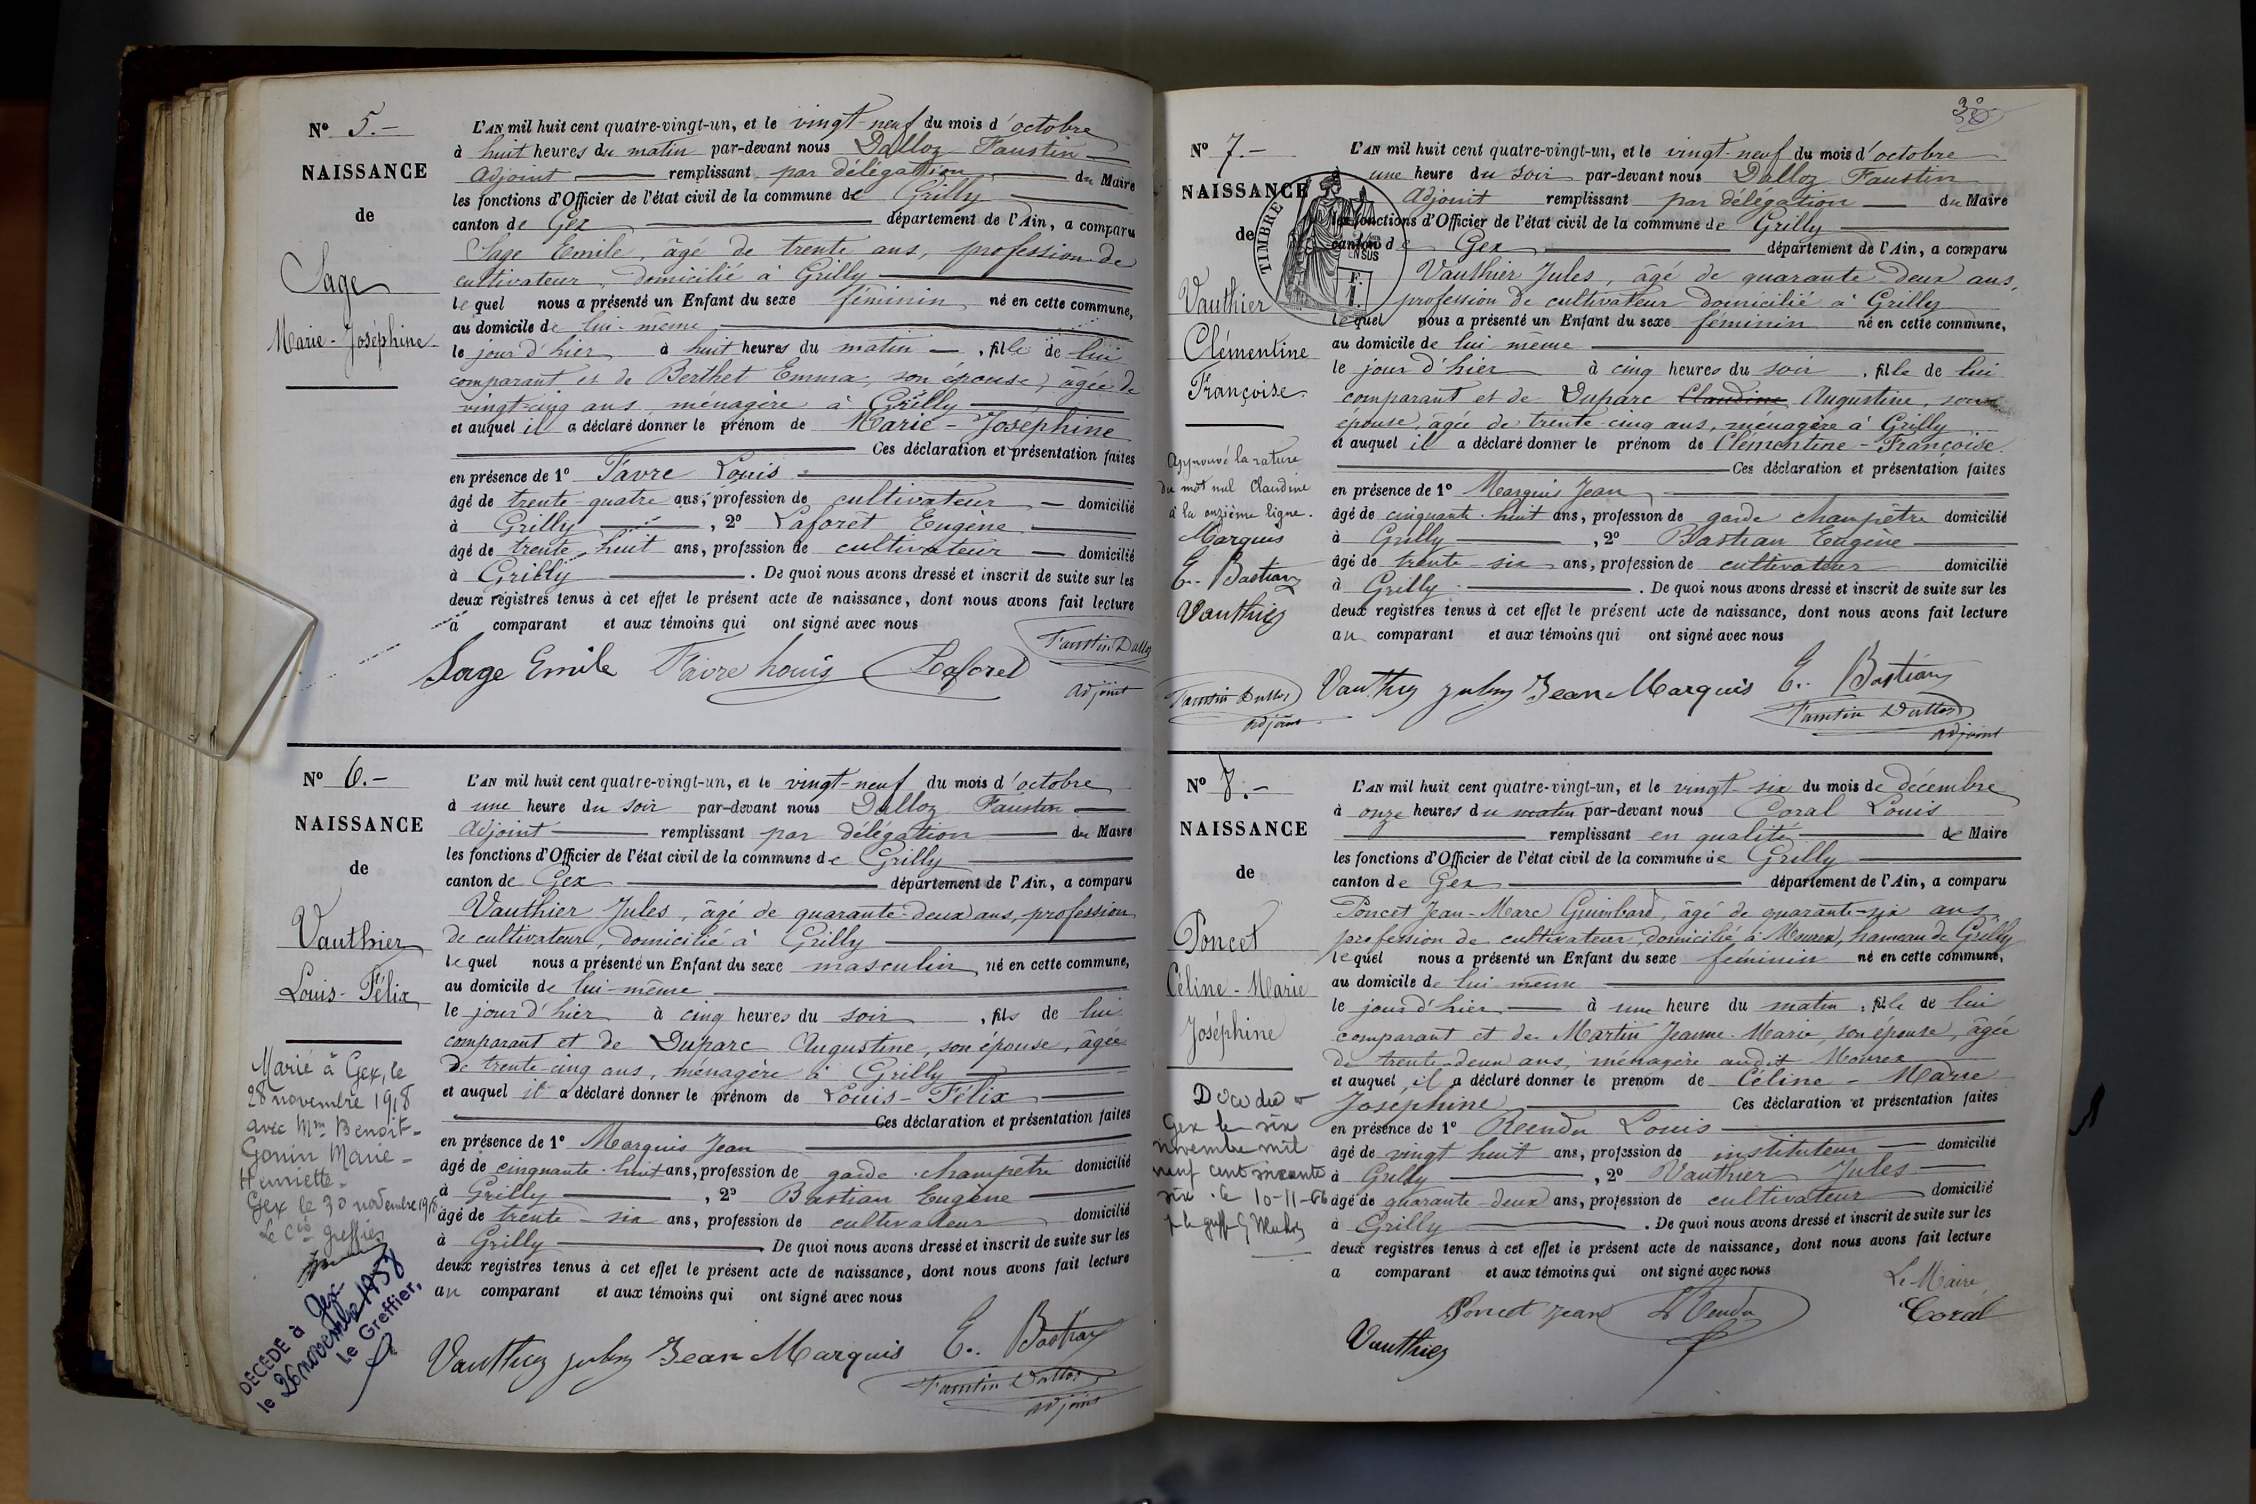 Nº 5.-
NAISSANCE
de
Sage
Marie-Joséphine
L'AN mil huit cent quatre-vingt-un, et le vingt-neuf du mois d'octobre
à huit heures du matin par-devant nous Dalloz Faustin
Adjoint remplissant par délégation du Maire
les fonctions d'Officier de l'état civil de la commune de Grilly
canton de Gex département de l'Ain, a comparu
Sage Emile, âgé de trente ans, profession de
cultivateur, domicilié à Grilly
lequel nous a présenté un Enfant du sexe féminin né en cette commune,
au domicile de lui-même
le jour d'hier à huit heures du matin, fille de lui
comparant et de Berthet Emma, son épouse, âgée de
vingt-cinq ans, ménagère à Grilly
et auquel il a déclaré donner le prénom de Marie-Joséphine
Ces déclaration et présentation faites
en présence de 1º Favre Louis
âgé de trente-quatre ans, profession de cultivateur domicilié
à Grilly, 2º Laforêt Eugène
âgé de trente-huit ans, profession de cultivateur domicilié
à Grilly. De quoi nous avons dressé et inscrit de suite sur les
deux régistres tenus à cet effet le présent acte de naissance, dont nous avons fait lecture
a comparant et aux témoins qui ont signé avec nous
Faustin Dalloz
Sage Emile Favre Louis Laforêt
adjoint
Nº 6.-
NAISSANCE
de
Vauthier
Louis-Félix
Marié à Gex, le
28 novembre 1918
avec Mme Benoit-
Gonin Marie-
Henriette.
Gex le 30 novembre 1918
Le Cis Greffier
DÉCÉDÉ à Gex
le 26 novembre 1958
Le Greffier,
L'AN mil huit cent quatre-vingt-un, et le vingt-neuf du mois d'octobre
à une heure du soir par-devant nous Dalloz Faustin
Adjoint remplissant par délégation du Maire
les fonctions d'Officier de l'état civil de la commune de Grilly
canton de Gex département de l'Ain, a comparu
Vauthier Jules, âgé de quarante-deux ans, profession
de cultivateur, domicilié à Grilly
lequel nous a présenté un Enfant du sexe masculin né en cette commune,
au domicile de lui-même
le jour d'hier à cinq heures du soir, fils de lui
comparant et de Duparc Augustine, son épouse, âgée
de trente-cinq ans, ménagère à Grilly
et auquel il a déclaré donner le prénom de Louis-Félix
Ces déclaration et présentation faites
en présence de 1º Marquis Jean
âgé de cinquante-huit ans, profession de garde champêtre domicilié
à Grilly, 2º Bastian Eugène
âgé de trente-six ans, profession de cultivateur domicilié
à Grilly. De quoi nous avons dressé et inscrit de suite sur les
deux registres tenus à cet effet le présent acte de naissance, dont nous avons fait lecture
au comparant et aux témoins qui ont signé avec nous
Vauthier jules Jean Marquis E. Bastian
Faustin Dalloz
adjoint
30
Nº 7.-
NAISSANCE
de
Vauthier
Clémentine
Françoise.
Approuvé la rature
du mot nul Claudine
à la onzième ligne.
Marquis
E. Bastian
Vauthier
Faustin Dalloz
adjoint
TIMBRE
EN SUS
L'AN mil huit cent quatre-vingt-un, et le vingt-neuf du mois d'octobre
une heure du soir par-devant nous Dalloz Faustin
Adjoint remplissant par délégation du Maire
les fonctions d'Officier de l'état civil de la commune de Grilly
canton de Gex département de l'Ain, a comparu
Vauthier Jules, âgé de quarante-deux ans,
profession de cultivateur domicilié à Grilly
lequel nous a présenté un Enfant du sexe féminin né en cette commune,
au domicile de lui-même
le jour d'hier à cinq heures du soir, fille de lui
comparant et de Duparc Claudine Augustine, son
épouse, âgée de trente-cinq ans, ménagère à Grilly
et auquel il a déclaré donner le prénom de Clémentine-Françoise.
Ces déclaration et présentation faites
en présence de 1º Marquis Jean
âgé de cinquante-huit ans, profession de garde champêtre domicilié
à Grilly, 2º Bastian Eugène
âgé de trente-six ans, profession de cultivateur domicilié
à Grilly. De quoi nous avons dressé et inscrit de suite sur les
deux registres tenus à cet effet le présent acte de naissance, dont nous avons fait lecture
au comparant et aux témoins qui ont signé avec nous
Vauthier jules Jean Marquis E. Bastian
Faustin Dalloz
adjoint
Nº 8.-
NAISSANCE
de
Poncet
Céline-Marie
Joséphine
Décédée à
Gex le six
novembre mil
neuf cent soixante
six. le 10-11-66
L'AN mil huit cent quatre-vingt-un, et le vingt-six du mois de décembre
à onze heures du matin par-devant nous Coral Louis
remplissant en qualité de Maire
les fonctions d'Officier de l'état civil de la commune de Grilly
canton de Gex département de l'Ain, a comparu
Poncet Jean-Marc Guimbard, âgé de quarante-six ans,
profession de cultivateur, domicilié à Mourex, hameau de Grilly
lequel nous a présenté un Enfant du sexe féminin né en cette commune,
au domicile de lui même
le jour d'hier à une heure du matin, fille de lui
comparant et de Martin Jeanne-Marie, son épouse, âgée
de trente-deux ans, ménagère audit Mourex
et auquel il a déclaré donner le prénom de Céline-Marie
Joséphine Ces déclaration et présentation faites
en présence de 1º Rendu Louis
âgé de vingt huit ans, profession de instituteur domicilié
à Grilly, 2º Vauthier Jules
âgé de quarante-deux ans, profession de cultivateur domicilié
à Grilly. De quoi nous avons dressé et inscrit de suite sur les
deux registres tenus à cet effet le présent acte de naissance, dont nous avons fait lecture
a comparant et aux témoins qui ont signé avec nous
Le Maire
Poncet Jean L Rendu Coral
Vauthier